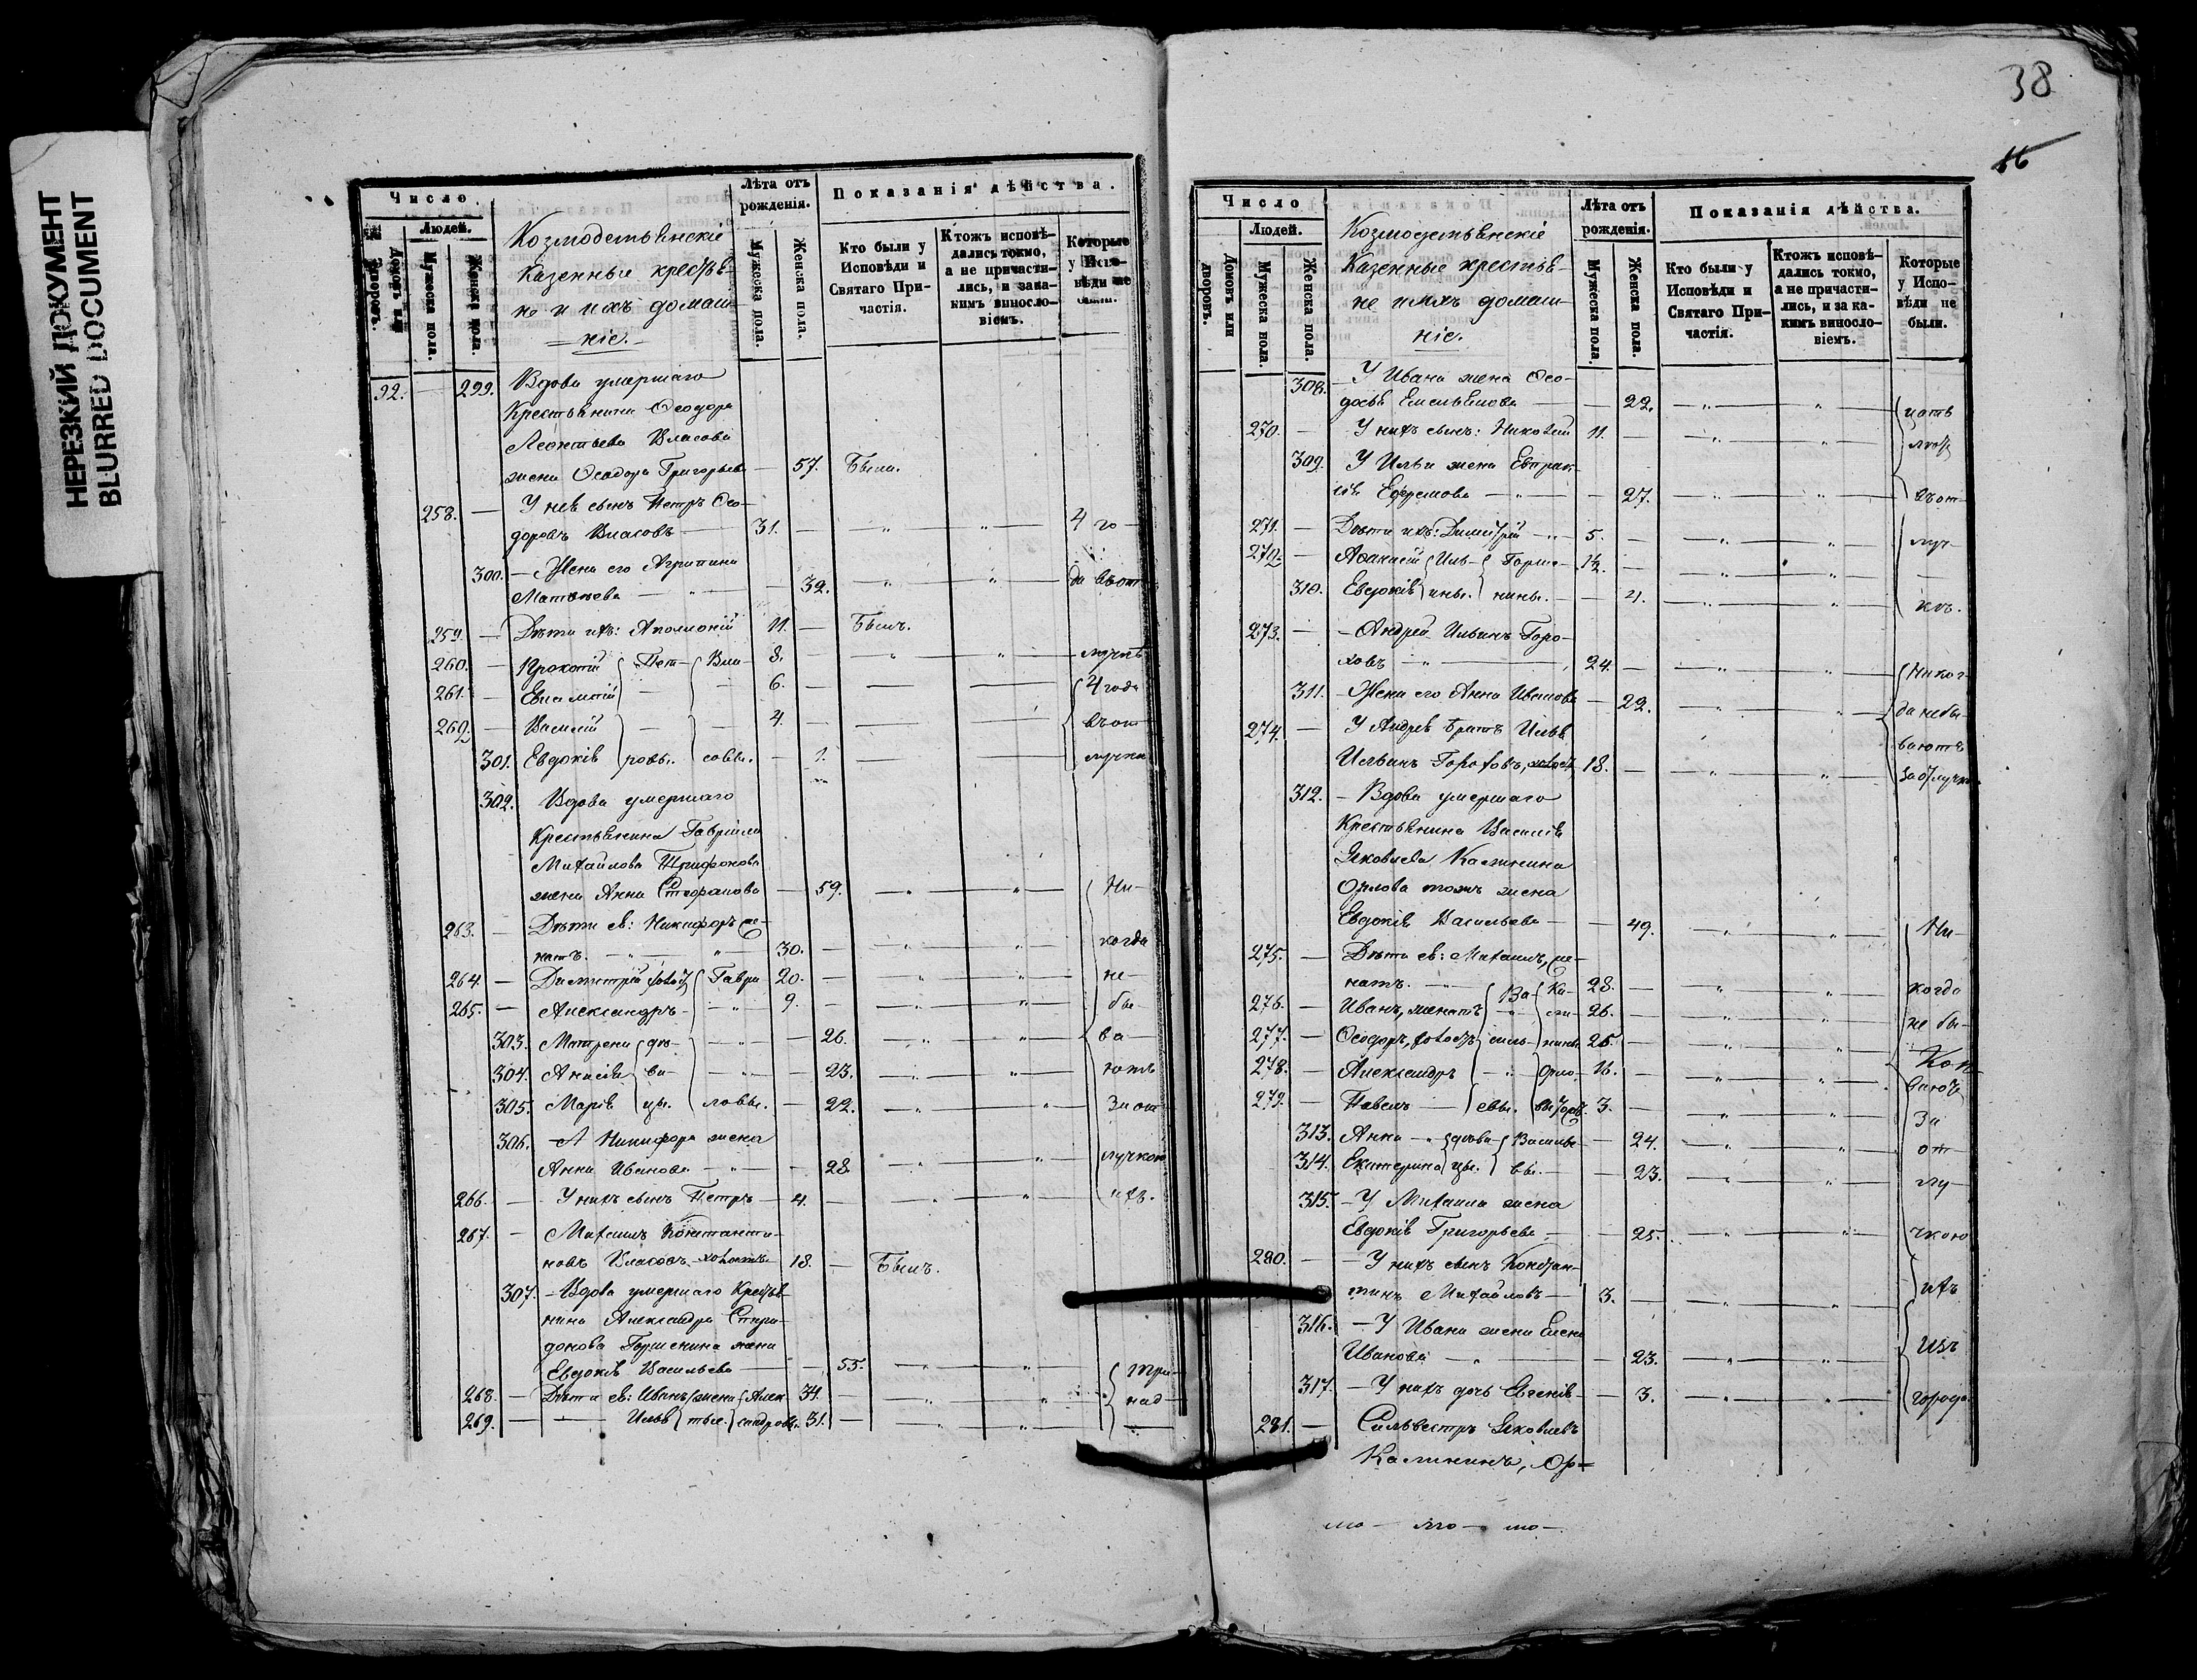 НЕРЕЗКИЙ ДОКУМЕНТ
BLURRED DOCUMENT
Число
Людей.
Домовъ или дворовъ.
Мужеска пола.
Женска пола.
Козмодемьянскіе
Казенные крестья-
не и ихъ домаш-
ніе.
Лѣта отъ рожденія.
Мужеска пола.
Женска пола.
Показанія дѣйства.
Кто были у Исповѣди и Святаго Причастія.
Ктожъ исповѣдались токмо, а не причастились, и за какимъ винословіемъ.
Которые у Исповѣди не были.
92. — 299. Вдова умершаго
Крестьянина Ѳеодора
Леонтьева Власова
жена Ѳеодора Григорьева — 57. Была.
258. — У нея сынъ Петръ Ѳео-
доровъ Власовъ 31. — „ „ 4 го-
300. — Жена его Агрипина
— 32. „ „ да въ от-
259. — Дѣти ихъ: 11. — Былъ.
260. — Прокопій Пет- Вла- 8. — „ „ лучкѣ
261. — 6. — 4 года
262. — Василій — — 4. — въ от-
301. Евдокія ровы. совы. — 1. лучкѣ
302. Вдова умершаго
Крестьянина Гавріила
Михайлова
жена Анна Стефанова — 59. — „ „ Ни-
263. — Дѣти ея: Никифоръ же-
натъ. — „ — „ — 30. — „ „ когда
264. — Димитрій холост Гаври 20. — „ „ не-
265. — Александръ — „ — 9. — „ „ бы-
303. Матрена дѣ- — „ — 26. — „ „ ва-
304. Анисія ви- — „ — 23. — „ „ ютъ
305. Марія цы. ловы. — 22. — „ „ За от-
306. — А Никифора жена
Анна Иванова — „ — 28 — „ „ лучкою
266. — У нихъ сынъ Петръ — 4. — „ „ ихъ.
267. — Михаилъ Константи-
новъ Власовъ холостъ 18. — Былъ.
307. — Вдова умершаго Крестья-
нина Александра Спири-
донова Горшенина жена
Евдокія Васильева — 55. — „ „ Три-
268. — Дѣти ея: Иванъ жена- Алек- 34. — „ „ над-
269. — — Илья тые. сандровы. 31. — „ „ —
38
16
Число
Людей.
Домовъ или дворовъ.
Мужеска пола.
Женска пола.
Козмодемьянскіе
Казенные крестья-
не и ихъ домаш-
ніе.
Лѣта отъ рожденія.
Мужеска пола.
Женска пола.
Показанія дѣйства.
Кто были у Исповѣди и Святаго Причастія.
Ктожъ исповѣдались токмо, а не причастились, и за какимъ винословіемъ.
Которые у Исповѣди не были.
308. — У Ивана жена Ѳео-
досья Емельянова — — 22. — „ „ цать
270. — У нихъ сынъ: Николай 11. — „ „
309. У Ильи жена Евпрак-
сія Ефремова — „ — — 27. — „ „ въ от-
271. — Дѣти ихъ: Димитрій — „ 5. — „ „ луч-
272. — Аѳанасій Иль- Горше- 1½. — „ „ —
310. Евдокія ины. нины. — 4. — „ „ кѣ.
273. — Андрей Ильинъ Горо-
ховъ — „ — 24. — „ „ Никог-
311. — Жена его Анна Иванова — 22. — „ „ да не бы-
274. — У Андрея братъ Илья
Ильинъ Гороховъ, холост 18. — „ „ ваютъ
за отлучкою
312. — Вдова умершаго
Крестьянина Василія
Яковлева Калинина
Орлова тожъ жена
Евдокія Васильева — — 49. — „ „ Ни-
275. — Дѣти ея: Михаилъ, же-
натъ. — 28. — „ „ когда
276. — Иванъ, женатъ Ва- Ка- 26. — „ „ не бы-
277. — Ѳеодоръ, холостъ силь- нины 25. — „ „
278. — Александръ — „ — Орло- 16. — „ „ ваютъ
279. — Павелъ — евы. вы тожъ. 3. — „ „ За
313. Анна — „ вдова- Василье- — 24. — „ „ от-
314. Екатерина цы. вы. — 23. — „ „ лу-
315. — У Михаила жена
Евдокія Григорьева — — 25. — „ „ чкою
280. — У нихъ сынъ Констан-
тинъ Михайловъ — 3. — „ „ ихъ
316. — У Ивана жена Елена
Иванова — „ — — 23. — „ „ изъ
317. — У нихъ дочь Евгенія — — 3. — „ „ города.
281. — Сильвестръ Яковлевъ
Калининъ, Ор-